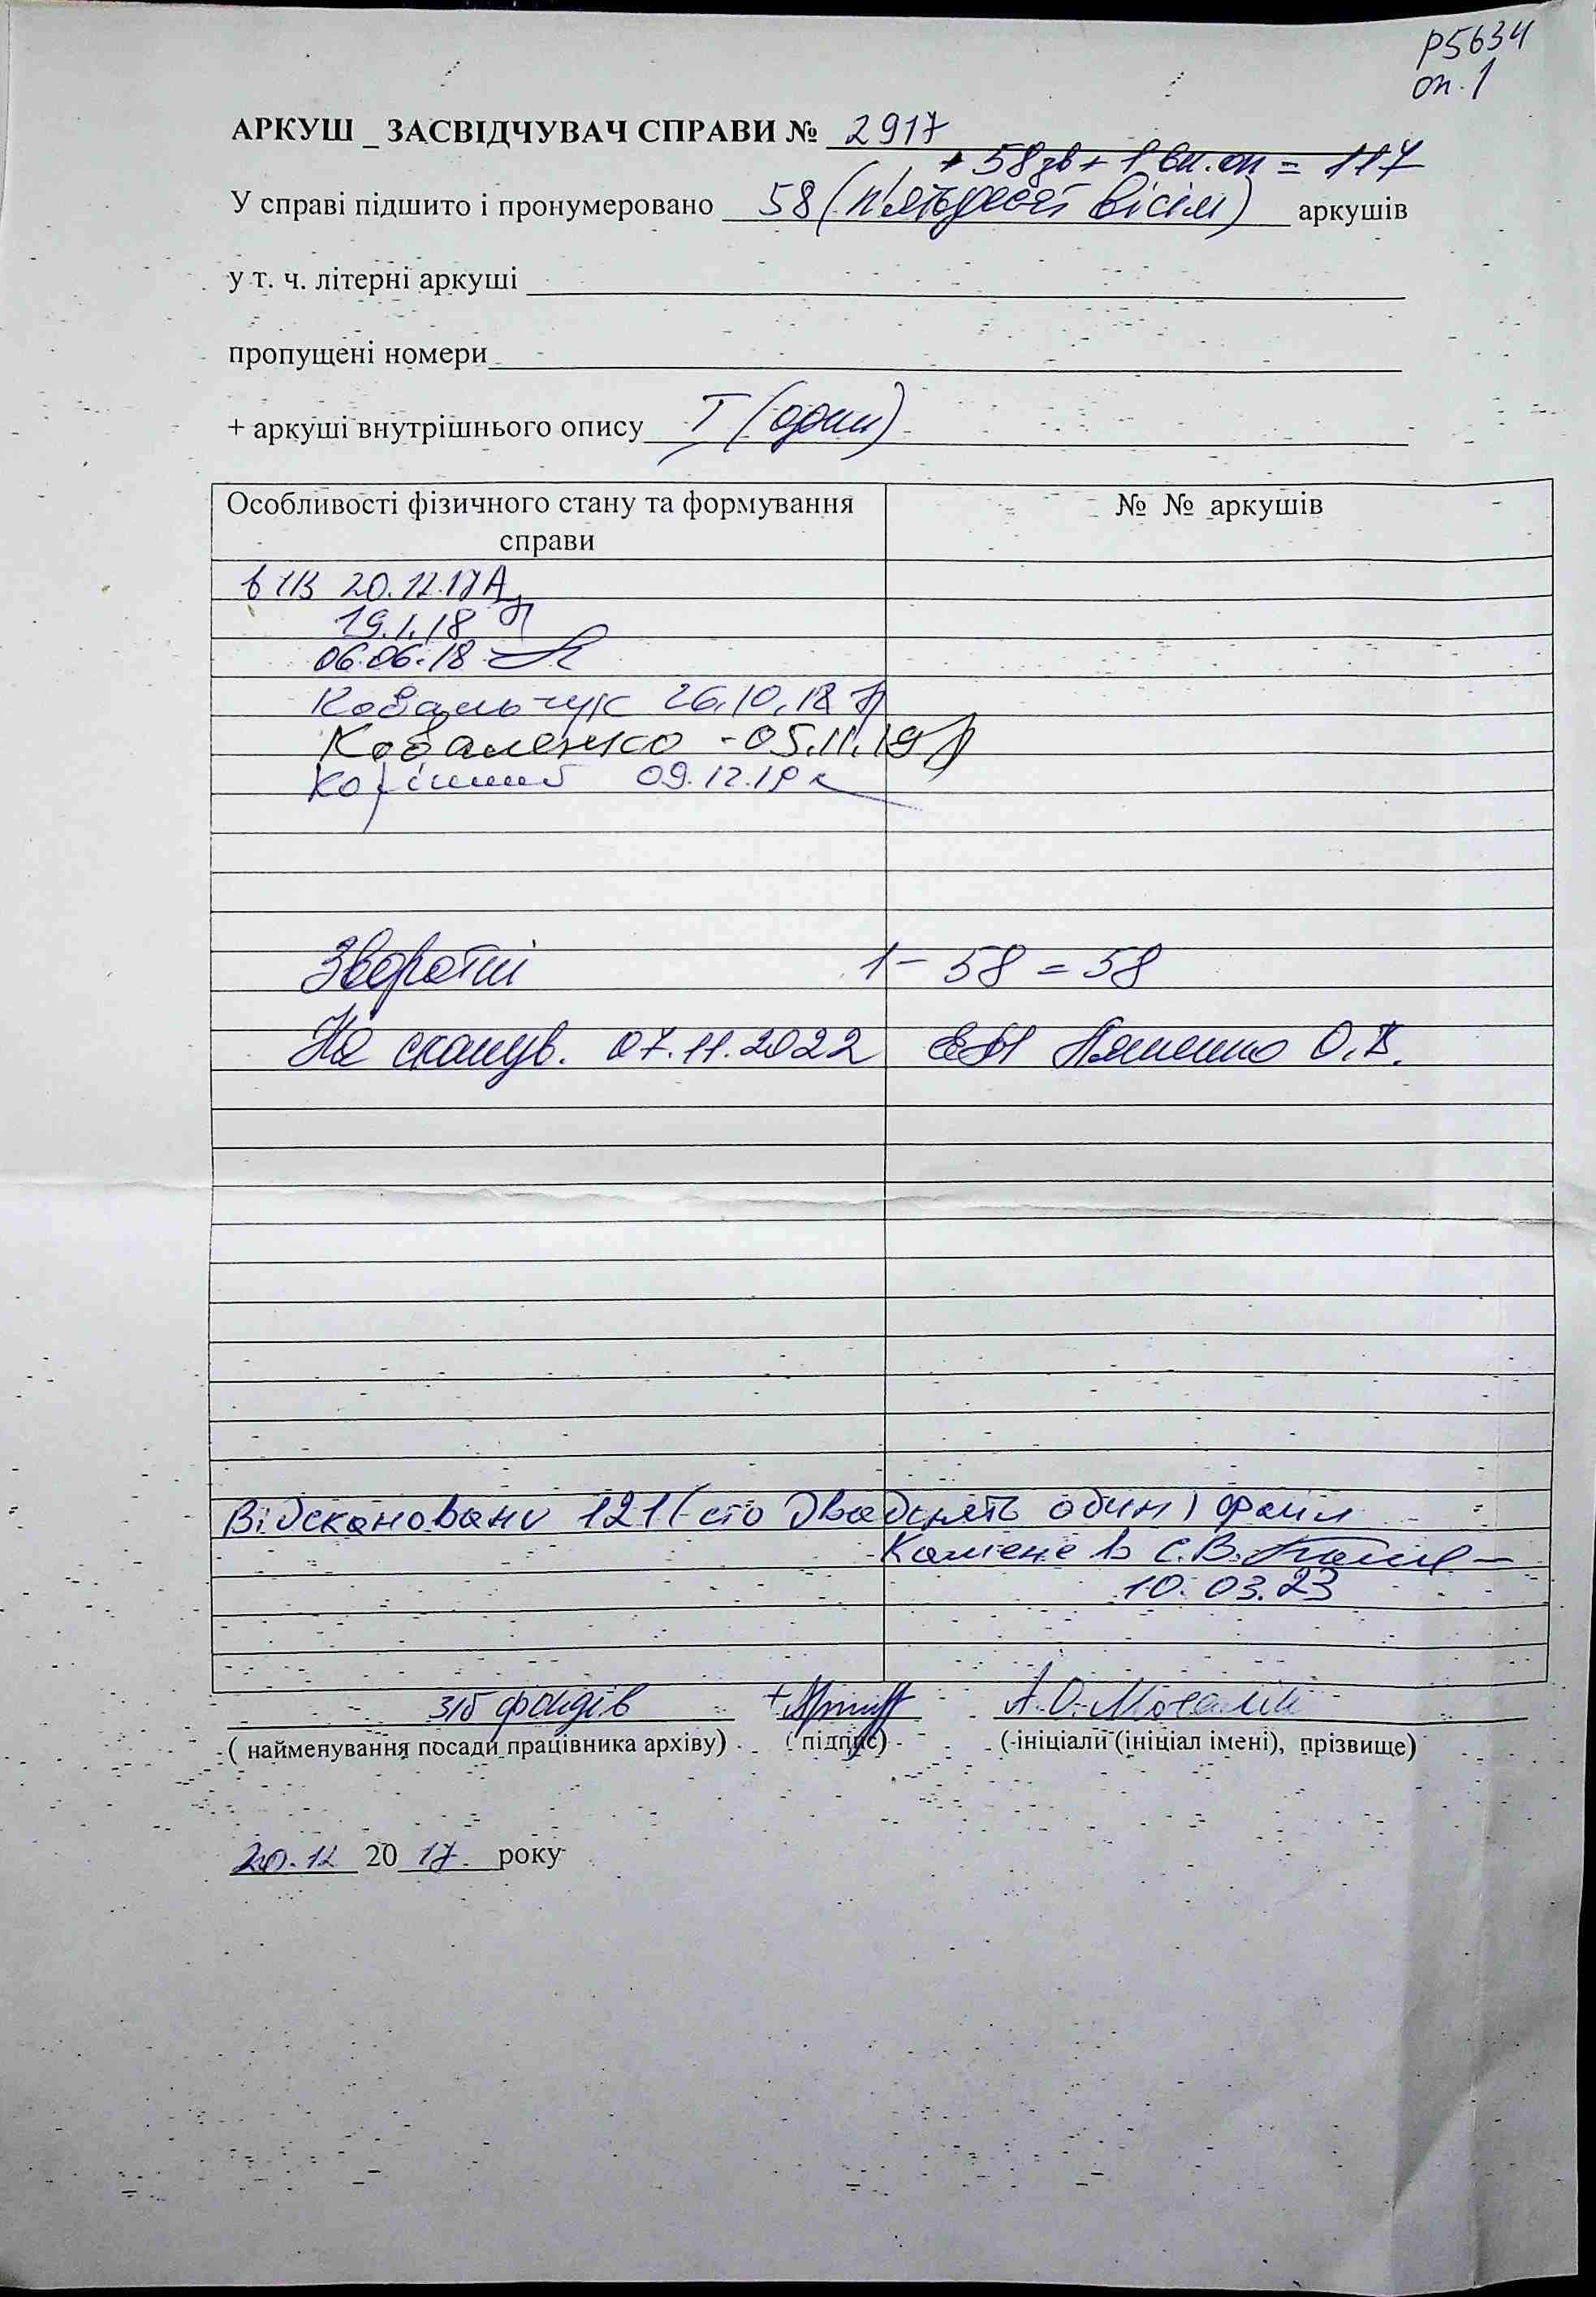 Р5634
оп.1
АРКУШ _ ЗАСВІДЧУВАЧ СПРАВИ № 2917
+ 58зв + 1 вн.оп = 117
У справі підшито і пронумеровано 58 (п'ятдесят вісім) аркушів
у т. ч. літерні аркуші
пропущені номери
+ аркуші внутрішнього опису I (один)
Особливості фізичного стану та формування справи
№ № аркушів
20.12.17
19.1.18
06.06.18
Ковальчук 26.10.18
Коваленко - 05.11.19
09.12.19
Зворотні 1 – 58 = 58
На сканув. 07.11.2022 О.В.
Відскановано 121 (сто двадцять один) файл
Каменєв С.В.
10.03.23
з/б фондів
( найменування посади працівника архіву) ( підпис) ( ініціали (ініціал імені), прізвище)
20.12 2017 року